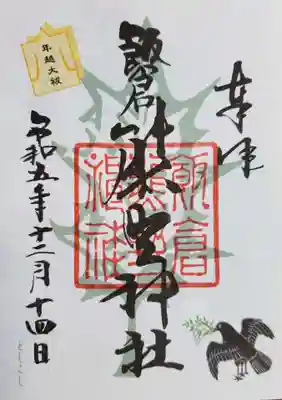 奉拝
飯倉
熊野神社
飯倉
熊野
神社
令和五年十二月十四日
年越大祓
としこし